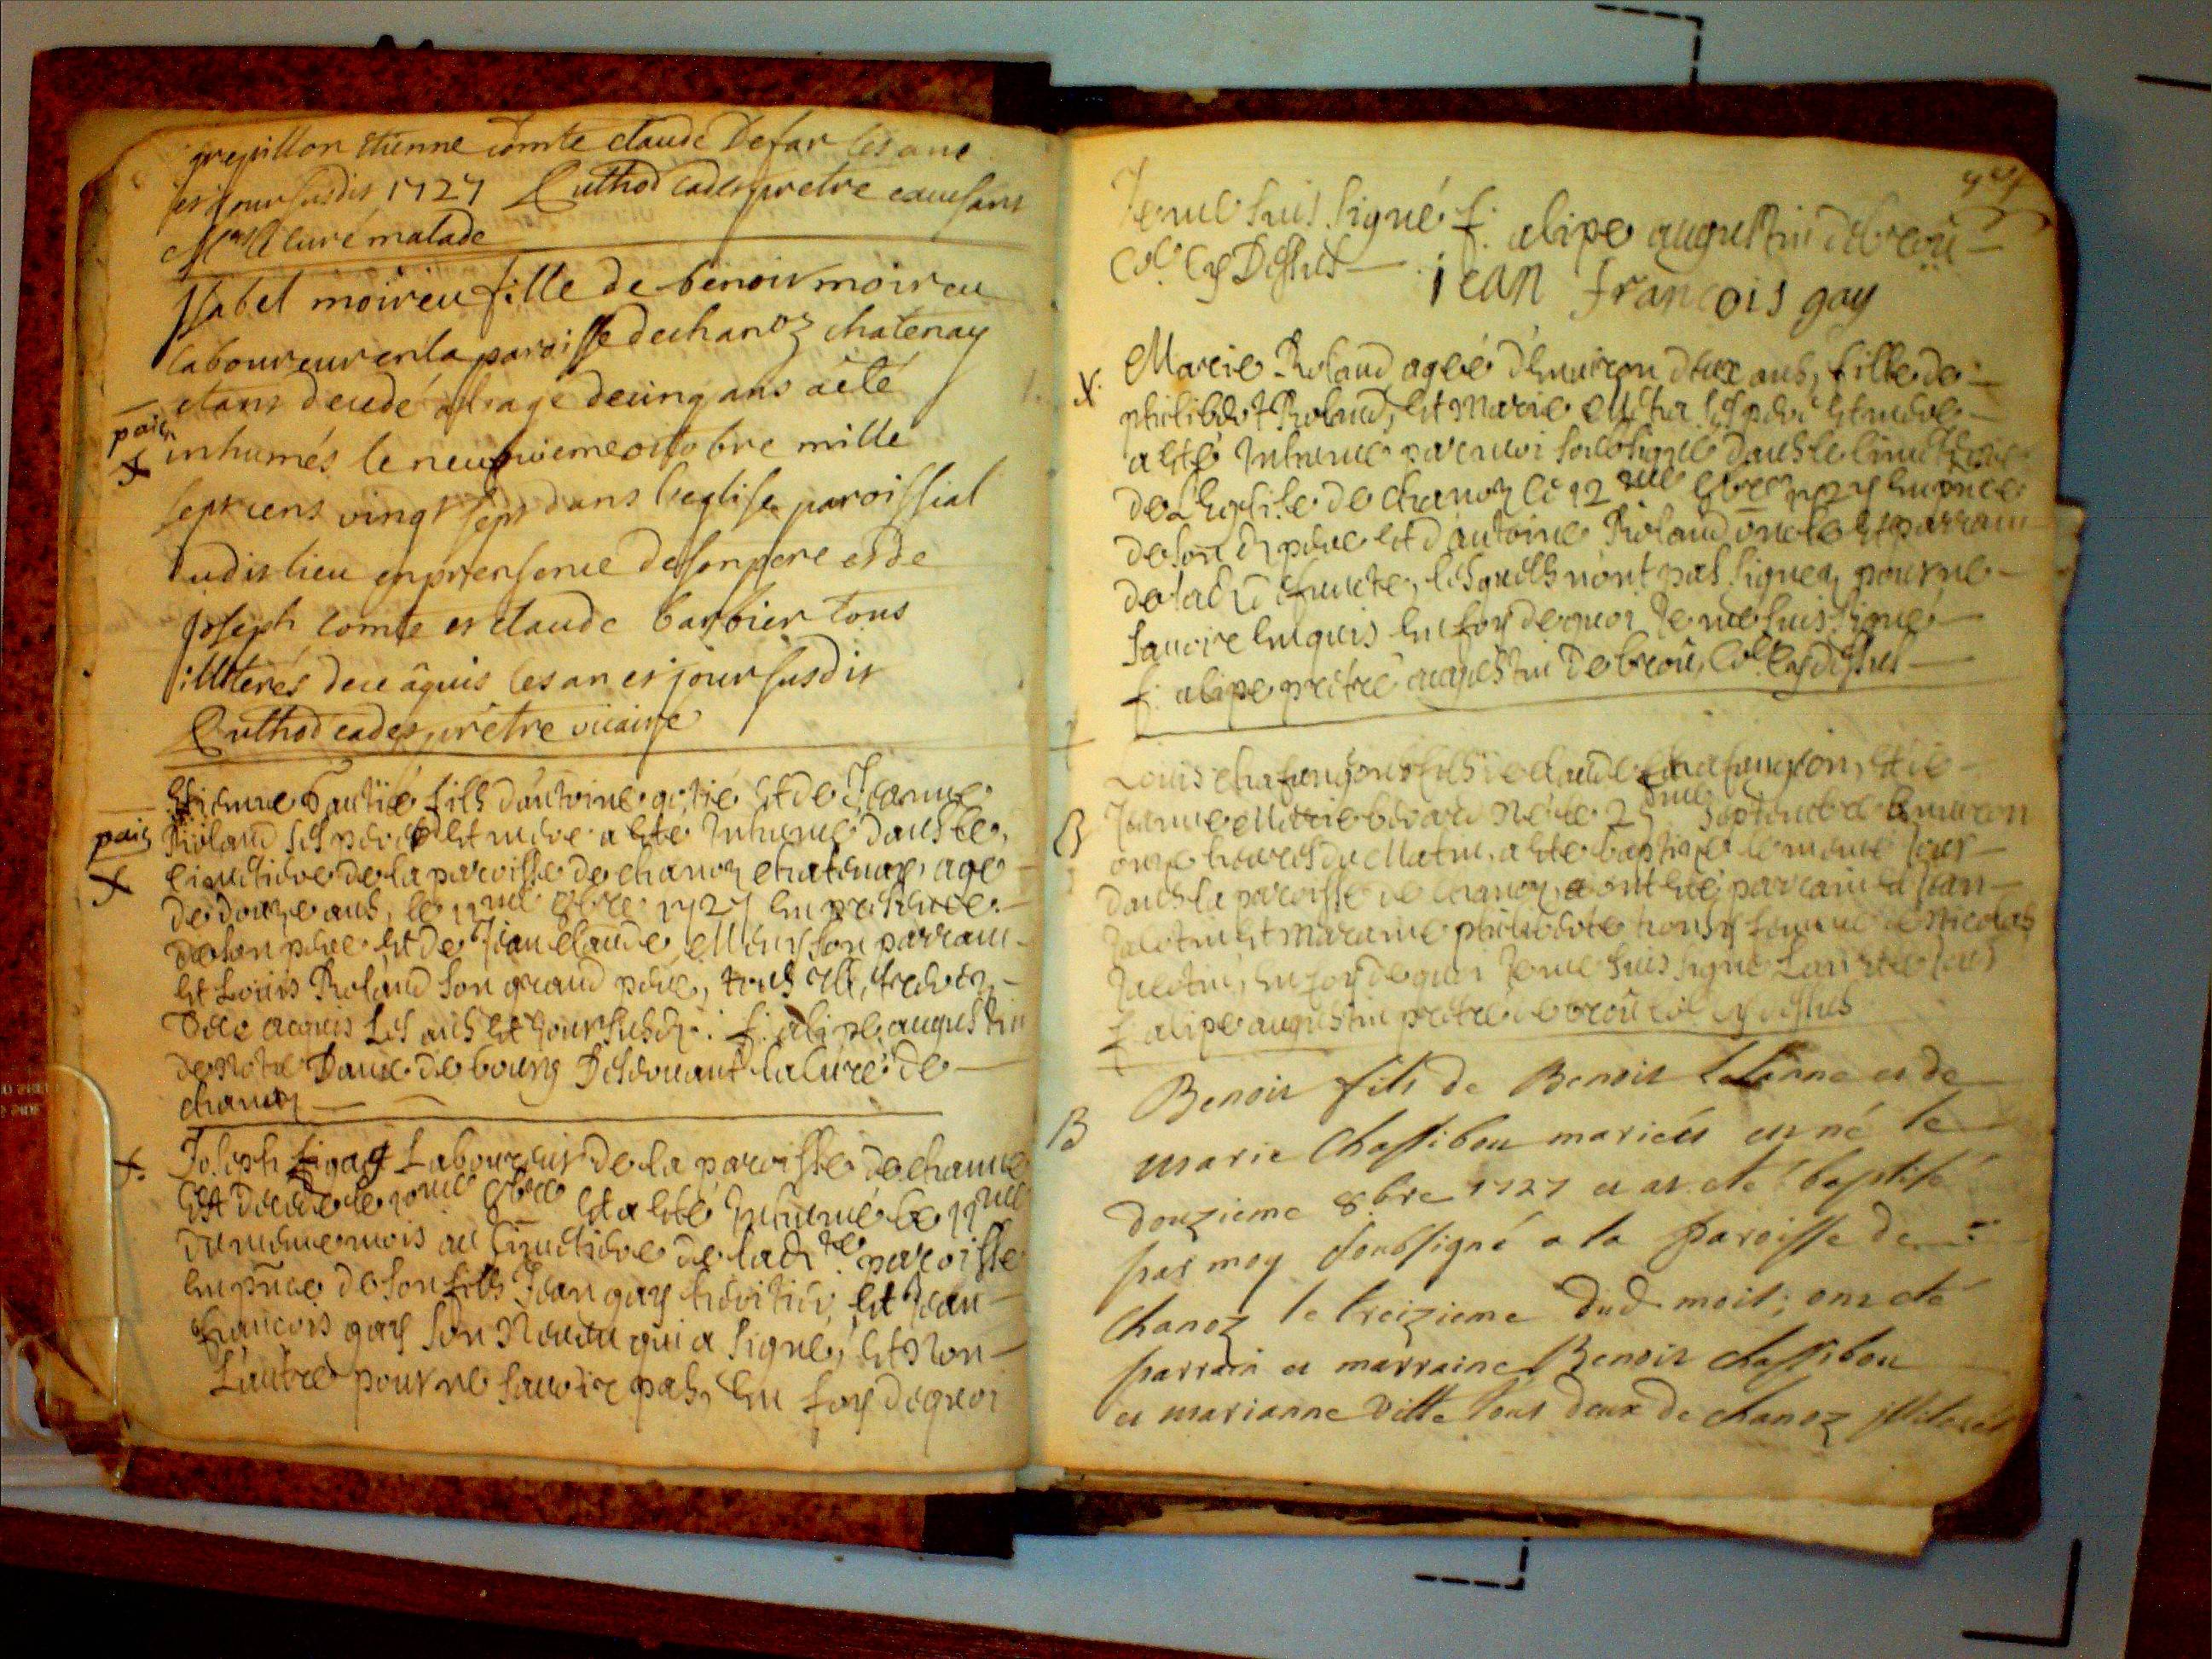 grepillon etienne comte claude Defar les ane
et jour susdit 1727 Cuthod cader pretre caue sans
Mr le curé malade
Isabel moireu fille de benoit moireu
laboureur en la paroisse de chanoz chatenay
etans decedé a l'age de cinq ans a été
paié
inhumés le neufvieme octobre mille
sept cens vingt sept dans l'eglise paroissial
dudit lieu en presence de son pere et de
joseph comte et claude barbier tous
illiterés de ce aquis les an et jour susdit
Cuthod cader prétre vicaire
Etienne Gautié fils d'antoine gotié et de Jeanne
paié
Roland ses pere et mere a été Inhumé dans le
cimetiere de la paroisse de chanoz chatenay, agé
de douze ans, le 11me 8bre 1727 en presence
de son pere et de Jean claude son parrain
et Louis Roland son grand pere, tous illiterez
de ce acquis Les ans et jour susd. f. alipe augustin
de Notre Dame de bourg Desservant la cure de
chanoz
Joseph gay Laboureur de la paroisse de chanoz
est decedé le 10me 8bre et a été Inhumé le 11me
du méme mois au Cimetiere de lad.te paroisse
en pnce de son fils Jean gay et Jean
francois gay son Neveu qui a signé, et Non
L'autre pour ne savoir pas, En foy de quoi
Je me suis signé f. alipe augustin de brou
Col. Cy Dessus
jean francois gay
X. Marie Roland agée d'environ deux ans, fille de
philibert Roland, et Marie ses pere et mere
a été Inhumé par moi soubsigné dans le cimetiere
de L'Eglise de chanoz le 12me 8bre 1727 en pnce
de son d. pere et d'antoine Roland oncle et parrain
de lad. defuncte, lesquels n'ont pas signez pour ne
savoire enquis En foy de quoi Je me suis signé
f. alipe prétre augustin De brou, Col. Cy dessus
Louis chafangeon fils de claude chafangeon, et de
B Jeanne Marie née le septembre environ
onze heures du Matin, a été baptizé le méme jour
dans la paroisse de chanoz, ont été parrain Jean
et Maraine philiberte femme de Nicolas
En foy de quoi Je me suis signé Lan et jour
f. alipe augustin prétre de brou col. cy dessus
B Benoit fils de Benoit et de
marie Chassibou mariés est né le
douzieme 8.bre 1727 et at eté baptisé
par moy soubsigné a la paroisse de
Chanoz le treizieme dud. mois; ont eté
parrain et marraine Benoit chassibou
et marianne Vitte tous deux de chanoz illiterés